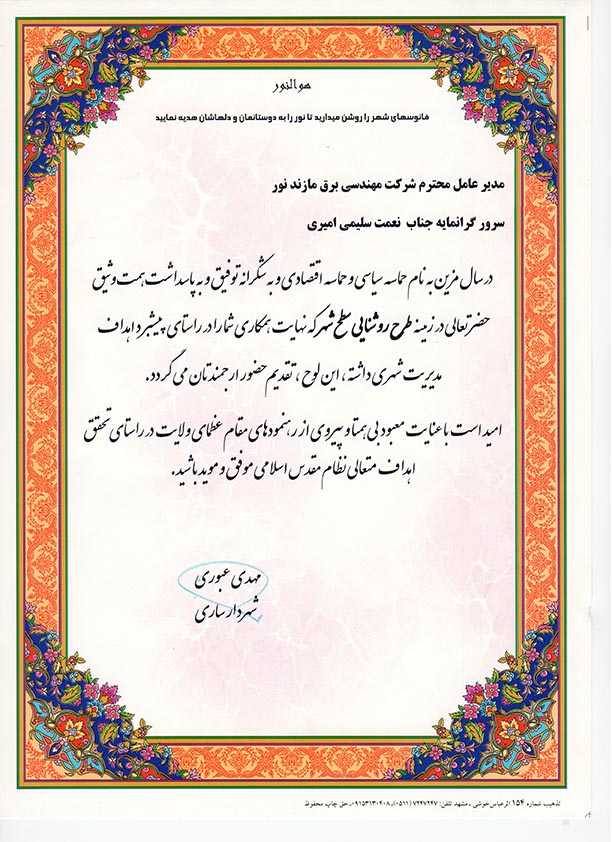 هوالنور
فانوسهای شهر را روشن میدارید تا نور را به دوستانمان و دلهاشان هدیه نمایید
مدیر عامل محترم شرکت مهندسی برق مازند نور
سرور گرانمایه جناب نعمت سلیمی امیری
در سال مزین به نام حماسه سیاسی و حماسه اقتصادی و به شکرانه توفیق و به پاسداشت همت وثیق
حضرتعالی در زمینه طرح روشنایی سطح شهر که نهایت همکاری شما را در راستای پیشبرد اهداف
مدیریت شهری داشته ، این لوح ، تقدیم حضور ارجمندتان می گردد.
امید است با عنایت معبود بی همتا و پیروی از رهنمودهای مقام عظمای ولایت در راستای تحقق
اهداف متعالی نظام مقدس اسلامی موفق و موید باشید.
مهدی عبوری
شهردار ساری
تذهیب شماره ۱۵۴ اثر عباس خوشی ـ مشهد تلفن: ۷۲۴۷۲۴۷ (۰۵۱۱)ـ ۰۹۱۵۳۱۳۰۴۰۸ـ حق چاپ محفوظ